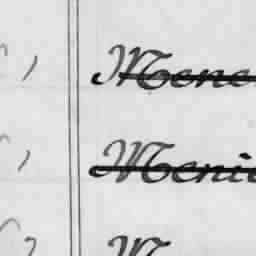 Mene
Meni
M